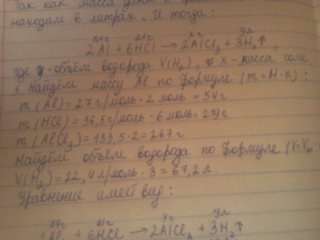 Так как масса
находим в литрах. И тогда:
2Al + 6HCl → 2AlCl₃ + 3H₂↑
где у-объём водорода V(H₂), а X-масса соли
Найдём массу Al по формуле (m=M·n):
m(Al)=27г/моль·2 моль=54г
m(HCl)=36,5г/моль·6 моль=219г
m(AlCl₃)=133,5·2=267г
Найдём объём водорода по формуле (V=Vm
V(H₂)=22,4л/моль·3=67,2л
Уравнение имеет вид:
+ 6HCl → 2AlCl₃ + 3H₂↑